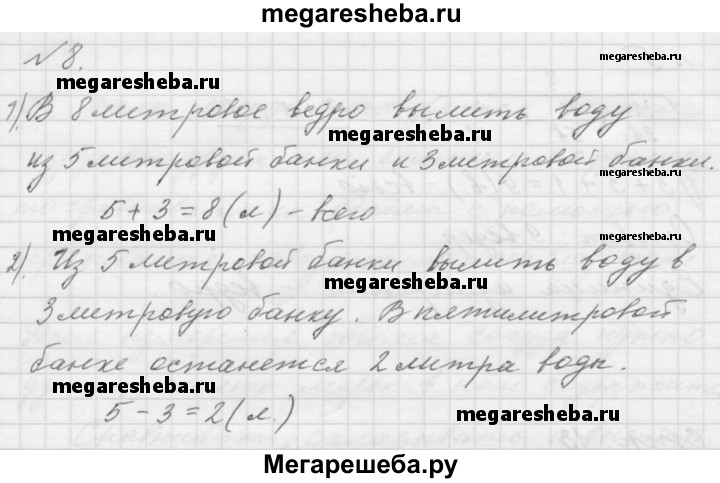 megaresheba.ru
№8.
megaresheba.ru
megaresheba.ru
1). В 8 литровое ведро вылить воду
megaresheba.ru
из 5 литровой банки и 3 литровой банки.
megaresheba.ru
5 + 3 = 8 (л) - всего
megaresheba.ru
megaresheba.ru
2). Из 5 литровой банки вылить воду в
megaresheba.ru
3 литровую банку. В пятилитровой
банке останется 2 литра воды.
megaresheba.ru
5 - 3 = 2 (л.)
megaresheba.ru
Мегарешеба.ру